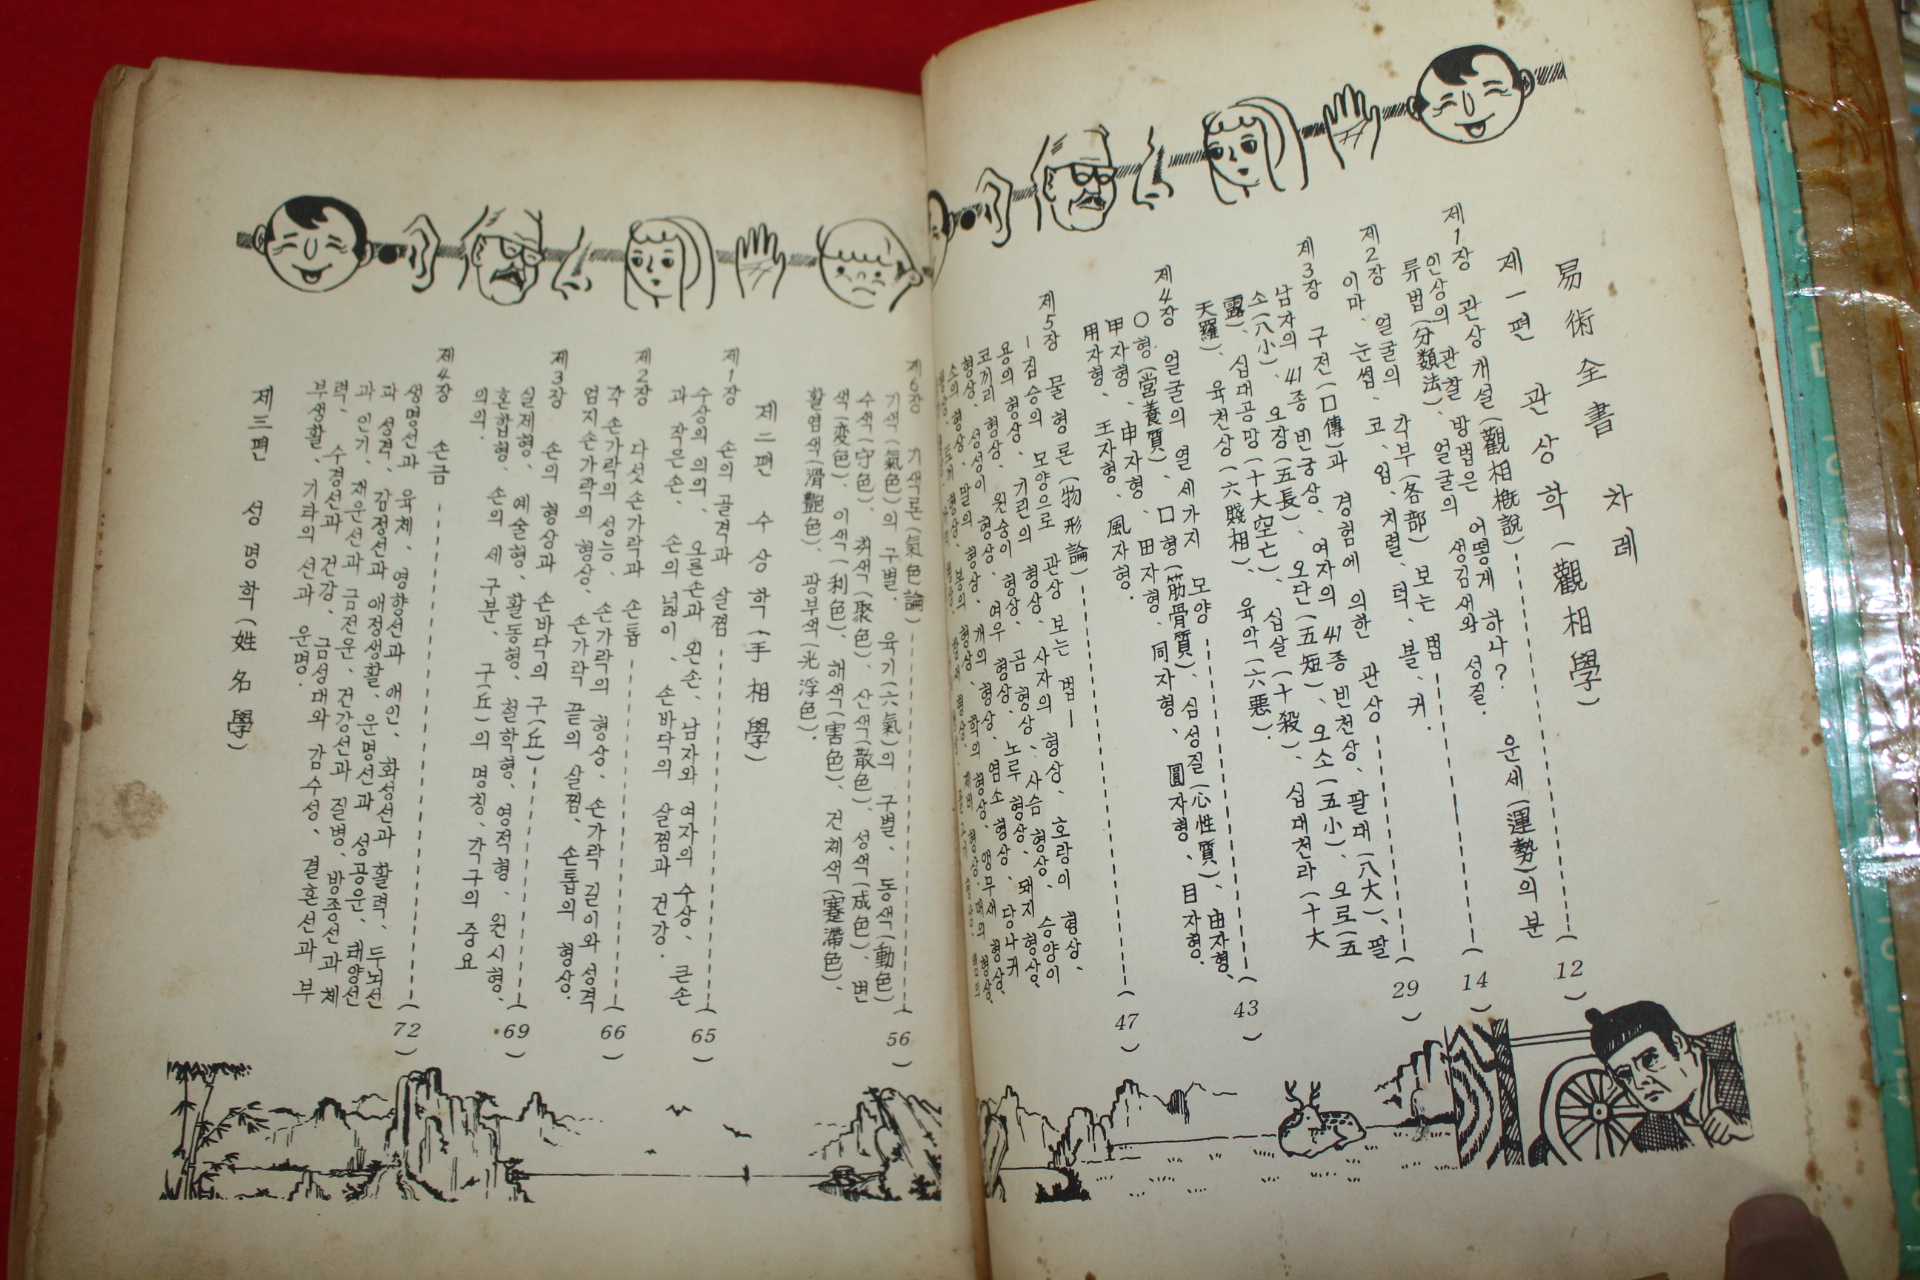 易術全書 차례
제一편 관상학(觀相學)
제1장 관상개설(觀相槪說)(12)
인상의 관찰 방법은 어떻게 하나? 운세(運勢)의 분
류법(分類法). 얼굴의 생김새와 성질.
제2장 얼굴의 각부(各部) 보는 법(14)
이마、눈썹、코、입、치렬、턱、볼、귀.
제3장 구전(口傳)과 경험에 의한 관상(29)
남자의 41종 빈궁상、여자의 41종 빈천상、팔대(八大)、팔
소(八小)、오장(五長)、오단(五短)、오소(五小)、오로(五
露)、십대공망(十大空亡)、십살(十殺)、십대천라(十大
天羅)、육천상(六賤相)、육악(六惡).
제4장 얼굴의 열세가지 모양(43)
○형(営養質)、口형(筋骨質)、심성질(心性質)、由자형、
甲자형、申자형、田자형、同자형、圓자형、目자형、
用자형、王자형、風자형.
제5장 물형론(物形論)(47)
ー짐승의 모양으로 관상 보는 법ー
용의 형상、기린의 형상、사자의 형상、호랑이 형상、
코끼리 형상、원숭이 형상、곰 형상、사슴 형상、승양이
형상、성성이 형상、여우 형상、노루 형상、돼지 형상、
소의 형상、말의 형상、개의 형상、염소 형상、당나귀 형상、
제6장 기색론(氣色論)(56)
기색(氣色)의 구별、육기(六氣)의 구별、동색(動色)
수색(守色)、취색(聚色)、산색(散色)、성색(成色)、변
색(変色)、이색(利色)、해색(害色)、건체색(蹇滯色)、
활염색(滑艶色)、광부색(光浮色).
제二편 수상학(手相學)
제1장 손의 골격과 살찜(65)
수상의 의의、오른손과 왼손、남자와 여자의 수상、큰손
과 작은손、손의 넓이、손바닥의 살찜과 건강.
제2장 다섯손가락과 손톱(66)
각 손가락의 성능、손가락의 형상、손가락 길이와 성격
엄지손가락의 형상、손가락 끝의 살찜、손톱의 형상.
제3장 손의 형상과 손바닥의 구(丘)(69)
실제형、예술형、활동형、철학형、영적형、원시형、
혼합형、손의 세 구분、구(丘)의 명칭、각구의 중요
의의.
제4장 손금(72)
생명선과 육체、영향선과 애인、화성선과 활력、두뇌선
과 성격、감정선과 애정생활、운명선과 성공운、태양선
과 인기、재운선과 금전운、건강선과 질병、방종선과 체
력、수경선과 건강、금성대와 감수성、결혼선과 부
부생활、기타의 선과 운명.
제三편 성명학(姓名學)